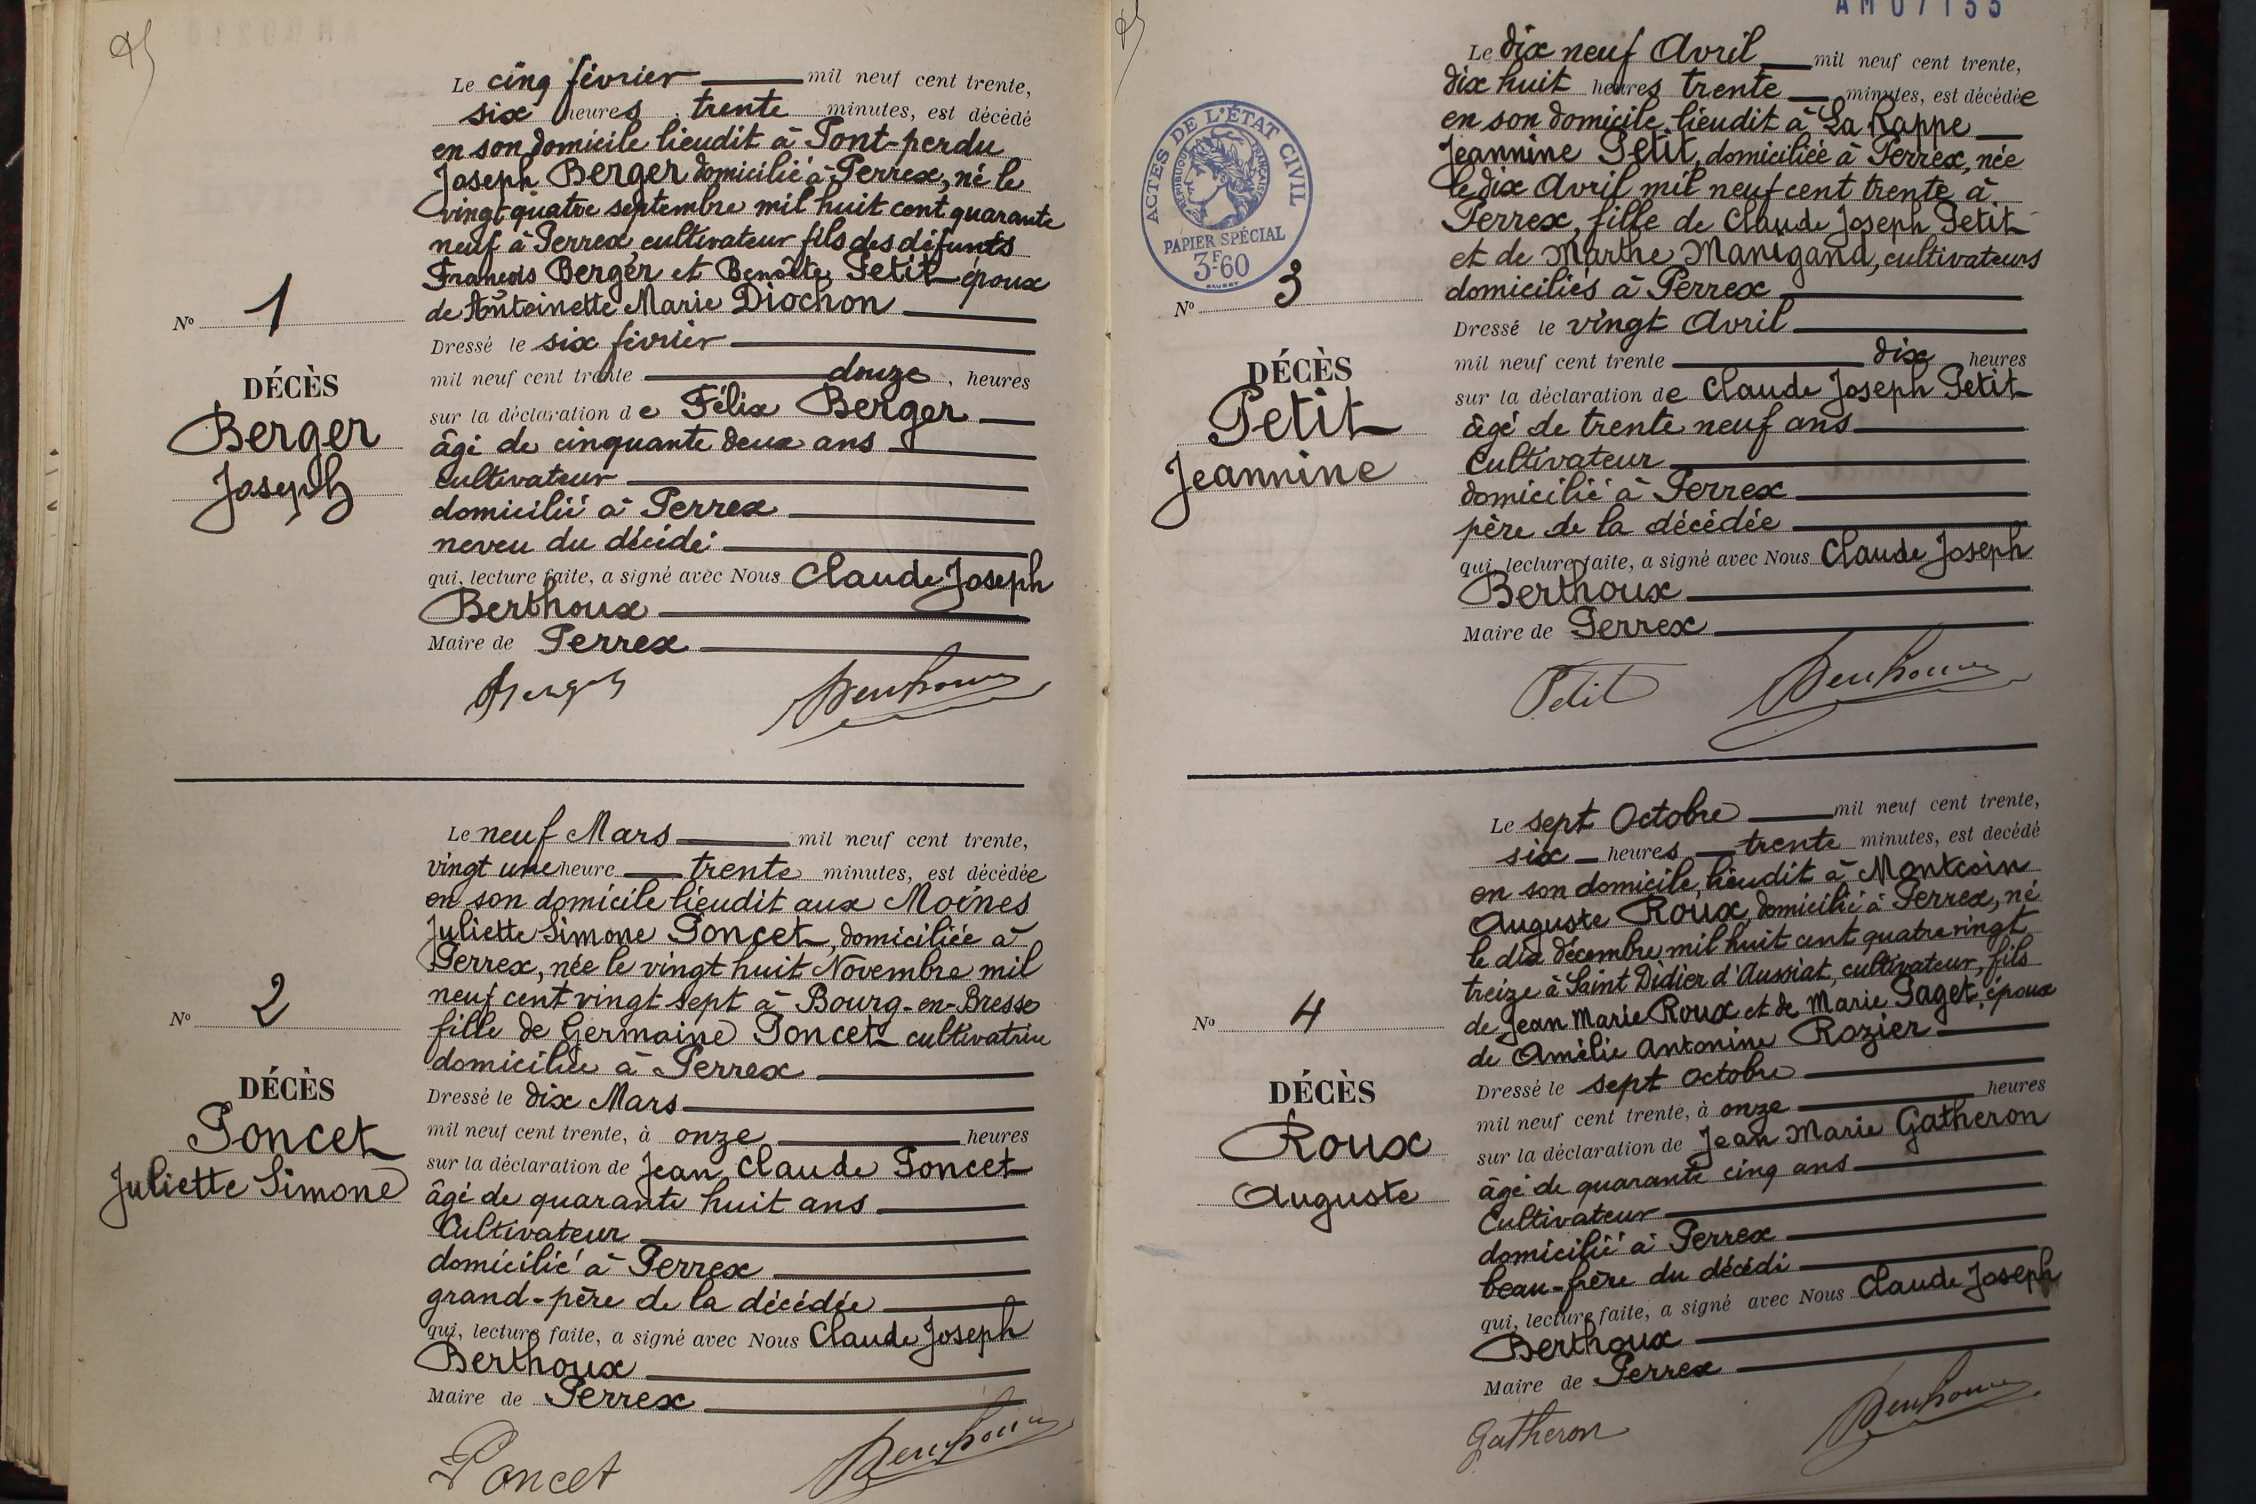 Le cinq février mil neuf cent trente,
six heures trente minutes, est décédé
en son domicile lieudit à Pont-perdu
Joseph Berger domicilié à Perrex, né le
vingt quatre septembre mil huit cent quarante
neuf à Perrex, cultivateur fils des défunts
François Berger et Benoîte Petit époux
de Antoinette Marie Diochon
Dressé le six février
mil neuf cent trente douze, heures
sur la déclaration de Félix Berger
âgé de cinquante deux ans
Cultivateur
domicilié à Perrex
neveu du décédé
qui, lecture faite, a signé avec Nous Claude Joseph
Berthoux
Maire de Perrex
Berger Berthoux
No 1
DÉCÈS
Berger
Joseph
Le neuf Mars mil neuf cent trente,
vingt une heure trente minutes, est décédée
en son domicile lieudit aux Moines
Juliette Simone Poncet, domiciliée à
Perrex, née le vingt huit Novembre mil
neuf cent vingt sept à Bourg-en-Bresse
fille de Germaine Poncet cultivatrice
domiciliée à Perrex
Dressé le dix Mars
mil neuf cent trente, à onze heures
sur la déclaration de Jean Claude Poncet
âgé de quarante huit ans
Cultivateur
domicilié à Perrex
grand-père de la décédée
qui, lecture faite, a signé avec Nous Claude Joseph
Berthoux
Maire de Perrex
Poncet Berthoux
No 2
DÉCÈS
Poncet
Juliette Simone
ACTES DE L'ÉTAT CIVIL
RÉPUBLIQUE FRANÇAISE
PAPIER SPÉCIAL
3F.60
AM 07155
Le dix neuf Avril mil neuf cent trente,
dix huit heures trente minutes, est décédée
en son domicile, lieudit à La Rappe
Jeannine Petit, domiciliée à Perrex, née
le dix Avril mil neuf cent trente à
Perrex, fille de Claude Joseph Petit
et de Marthe Manigand, cultivateurs
domiciliés à Perrex
Dressé le vingt Avril
mil neuf cent trente dix heures
sur la déclaration de Claude Joseph Petit
âgé de trente neuf ans
Cultivateur
domicilié à Perrex
père de la décédée
qui, lecture faite, a signé avec Nous Claude Joseph
Berthoux
Maire de Perrex
Petit Berthoux
No 3
DÉCÈS
Petit
Jeannine
Le sept Octobre mil neuf cent trente,
six heures trente minutes, est décédé
en son domicile, lieudit à Montcoin
Auguste Roux, domicilié à Perrex, né
le dix décembre mil huit cent quatre vingt
treize à Saint Didier d'Aussiat, cultivateur, fils
de Jean Marie Roux et de Marie Paget, époux
de Amélie Antonine Rozier
Dressé le sept Octobre
mil neuf cent trente, à onze heures
sur la déclaration de Jean Marie Gatheron
âgé de quarante cinq ans
Cultivateur
domicilié à Perrex
beau-frère du décédé
qui, lecture faite, a signé avec Nous Claude Joseph
Berthoux
Maire de Perrex
Gatheron Berthoux
No 4
DÉCÈS
Roux
Auguste